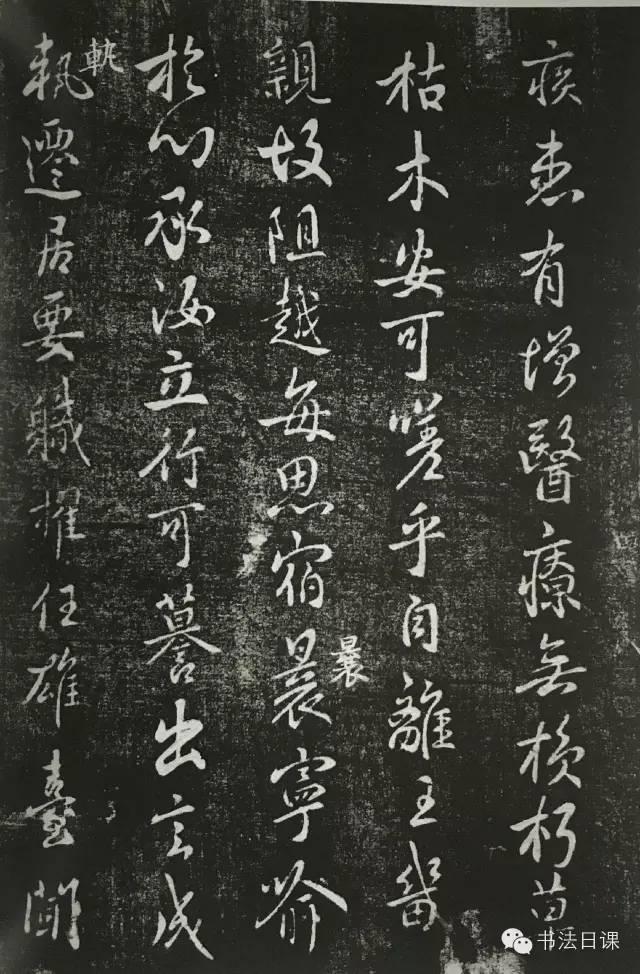 疾患有增醫療無損朽
枯木安可嗟乎自離王畿
親故阻越每思宿晨寧喻
曩
於心承汝立行可謩出言成
軌遷居要軄擢任雄臺
軌
书法日课